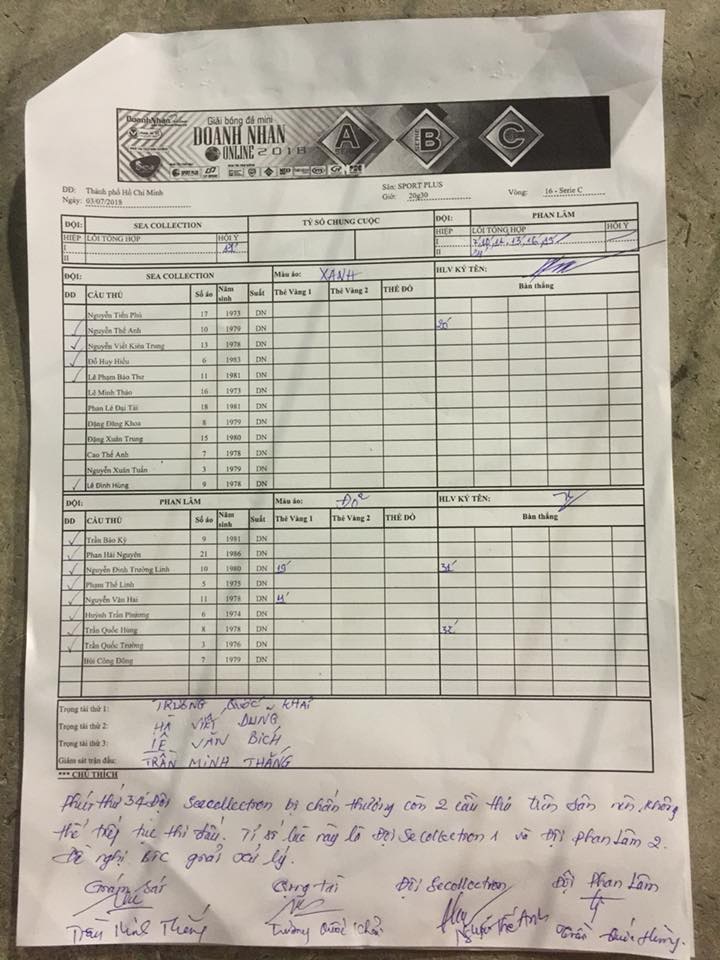 DoanhNhan
Giải bóng đá mini
DOANH NHAN
ONLINE 2018
A
B
C
DĐ: Thành phố Hồ Chí Minh
Sân: SPORT PLUS
Ngày: 03/07/2018
Giờ: 20g30
Vòng: 16 - Serie C
ĐỘI: SEA COLLECTION
TỶ SỐ CHUNG CUỘC
ĐỘI: PHAN LÂM
HIỆP LỖI TỔNG HỢP HỘI Ý
HIỆP LỖI TỔNG HỢP HỘI Ý
I
I
II
II
ĐỘI: SEA COLLECTION Màu áo: XANH HLV KÝ TÊN:
DD CẦU THỦ Số áo Năm sinh Suất Thẻ Vàng 1 Thẻ Vàng 2 THẺ ĐỎ Bàn thắng
Nguyễn Tiến Phú 17 1973 DN
Nguyễn Thế Anh 10 1979 DN 20'
Nguyễn Viết Kiên Trung 13 1978 DN
Đỗ Huy Hiếu 6 1983 DN
Lê Phạm Bảo Thư 11 1981 DN
Lê Minh Thảo 16 1973 DN
Phan Lê Đại Tài 18 1981 DN
Đặng Đăng Khoa 8 1979 DN
Đặng Xuân Trung 15 1980 DN
Cao Thế Anh 7 1978 DN
Nguyễn Xuân Tuấn 3 1979 DN
Lê Đình Hùng 9 1978 DN
ĐỘI: PHAN LÂM Màu áo: Đỏ HLV KÝ TÊN:
DD CẦU THỦ Số áo Năm sinh Suất Thẻ Vàng 1 Thẻ Vàng 2 THẺ ĐỎ Bàn thắng
Trần Bảo Kỳ 9 1981 DN
Phan Hải Nguyên 21 1986 DN
Nguyễn Đình Trường Linh 10 1980 DN 19' 31'
Phạm Thế Linh 5 1975 DN
Nguyễn Văn Hai 11 1978 DN
Huỳnh Trần Phương 6 1974 DN
Trần Quốc Hùng 8 1978 DN 32'
Trần Quốc Trường 3 1976 DN
Bùi Công Đông 7 1979 DN
Trọng tài thứ 1: TRƯƠNG QUỐC KHẢI
Trọng tài thứ 2: HÀ VIẾT DUNG
Trọng tài thứ 3: LÊ VĂN BÍCH
Giám sát trận đấu: TRẦN MINH THẮNG
*** CHÚ THÍCH
Phút thứ 34 Đội Seacollection bị chấn thương còn 2 cầu thủ trên sân nên không
thể tiếp tục thi đấu. Tỉ số lúc này là Đội Secollection 1 và Đội Phan Lâm 2.
Đề nghị BTC giải xử lý.
Giám sát Trọng tài Đội Secollection Đội Phan Lâm
Trần Minh Thắng Trương Quốc Khải Nguyễn Thế Anh Trần Quốc Hùng